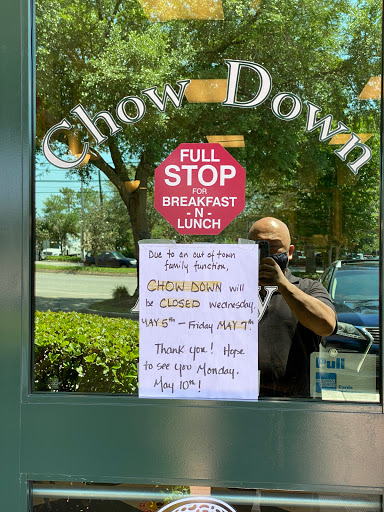 Chow Down
FULL
STOP
FOR
BREAKFAST
- N -
LUNCH
Due to an out of town
family function,
CHOW DOWN will
be CLOSED Wednesday,
MAY 5th - Friday MAY 7th
Thank you! Hope
to see you Monday.
May 10th!